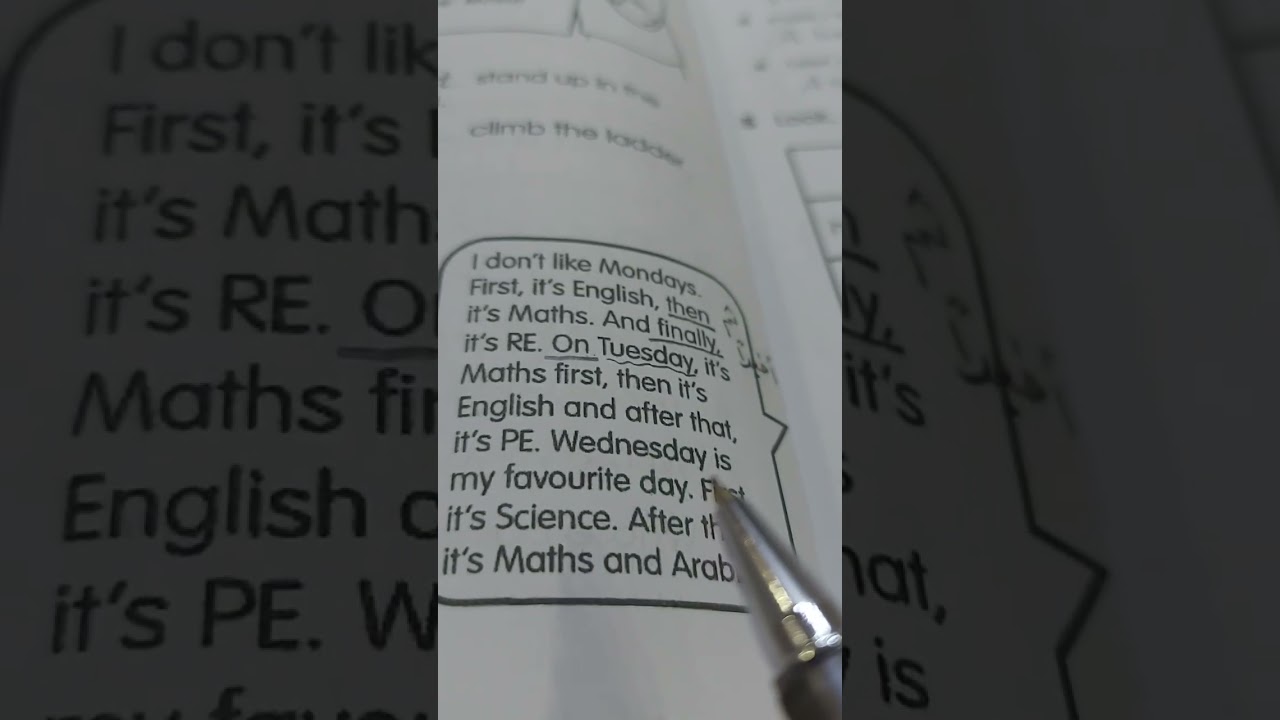 stand up in the
climb the ladder
I don't like Mondays.
First, it's English, then
it's Maths. And finally,
it's RE. On Tuesday, it's
Maths first, then it's
English and after that,
it's PE. Wednesday is
my favourite day. First
it's Science. After
it's Maths and Arab